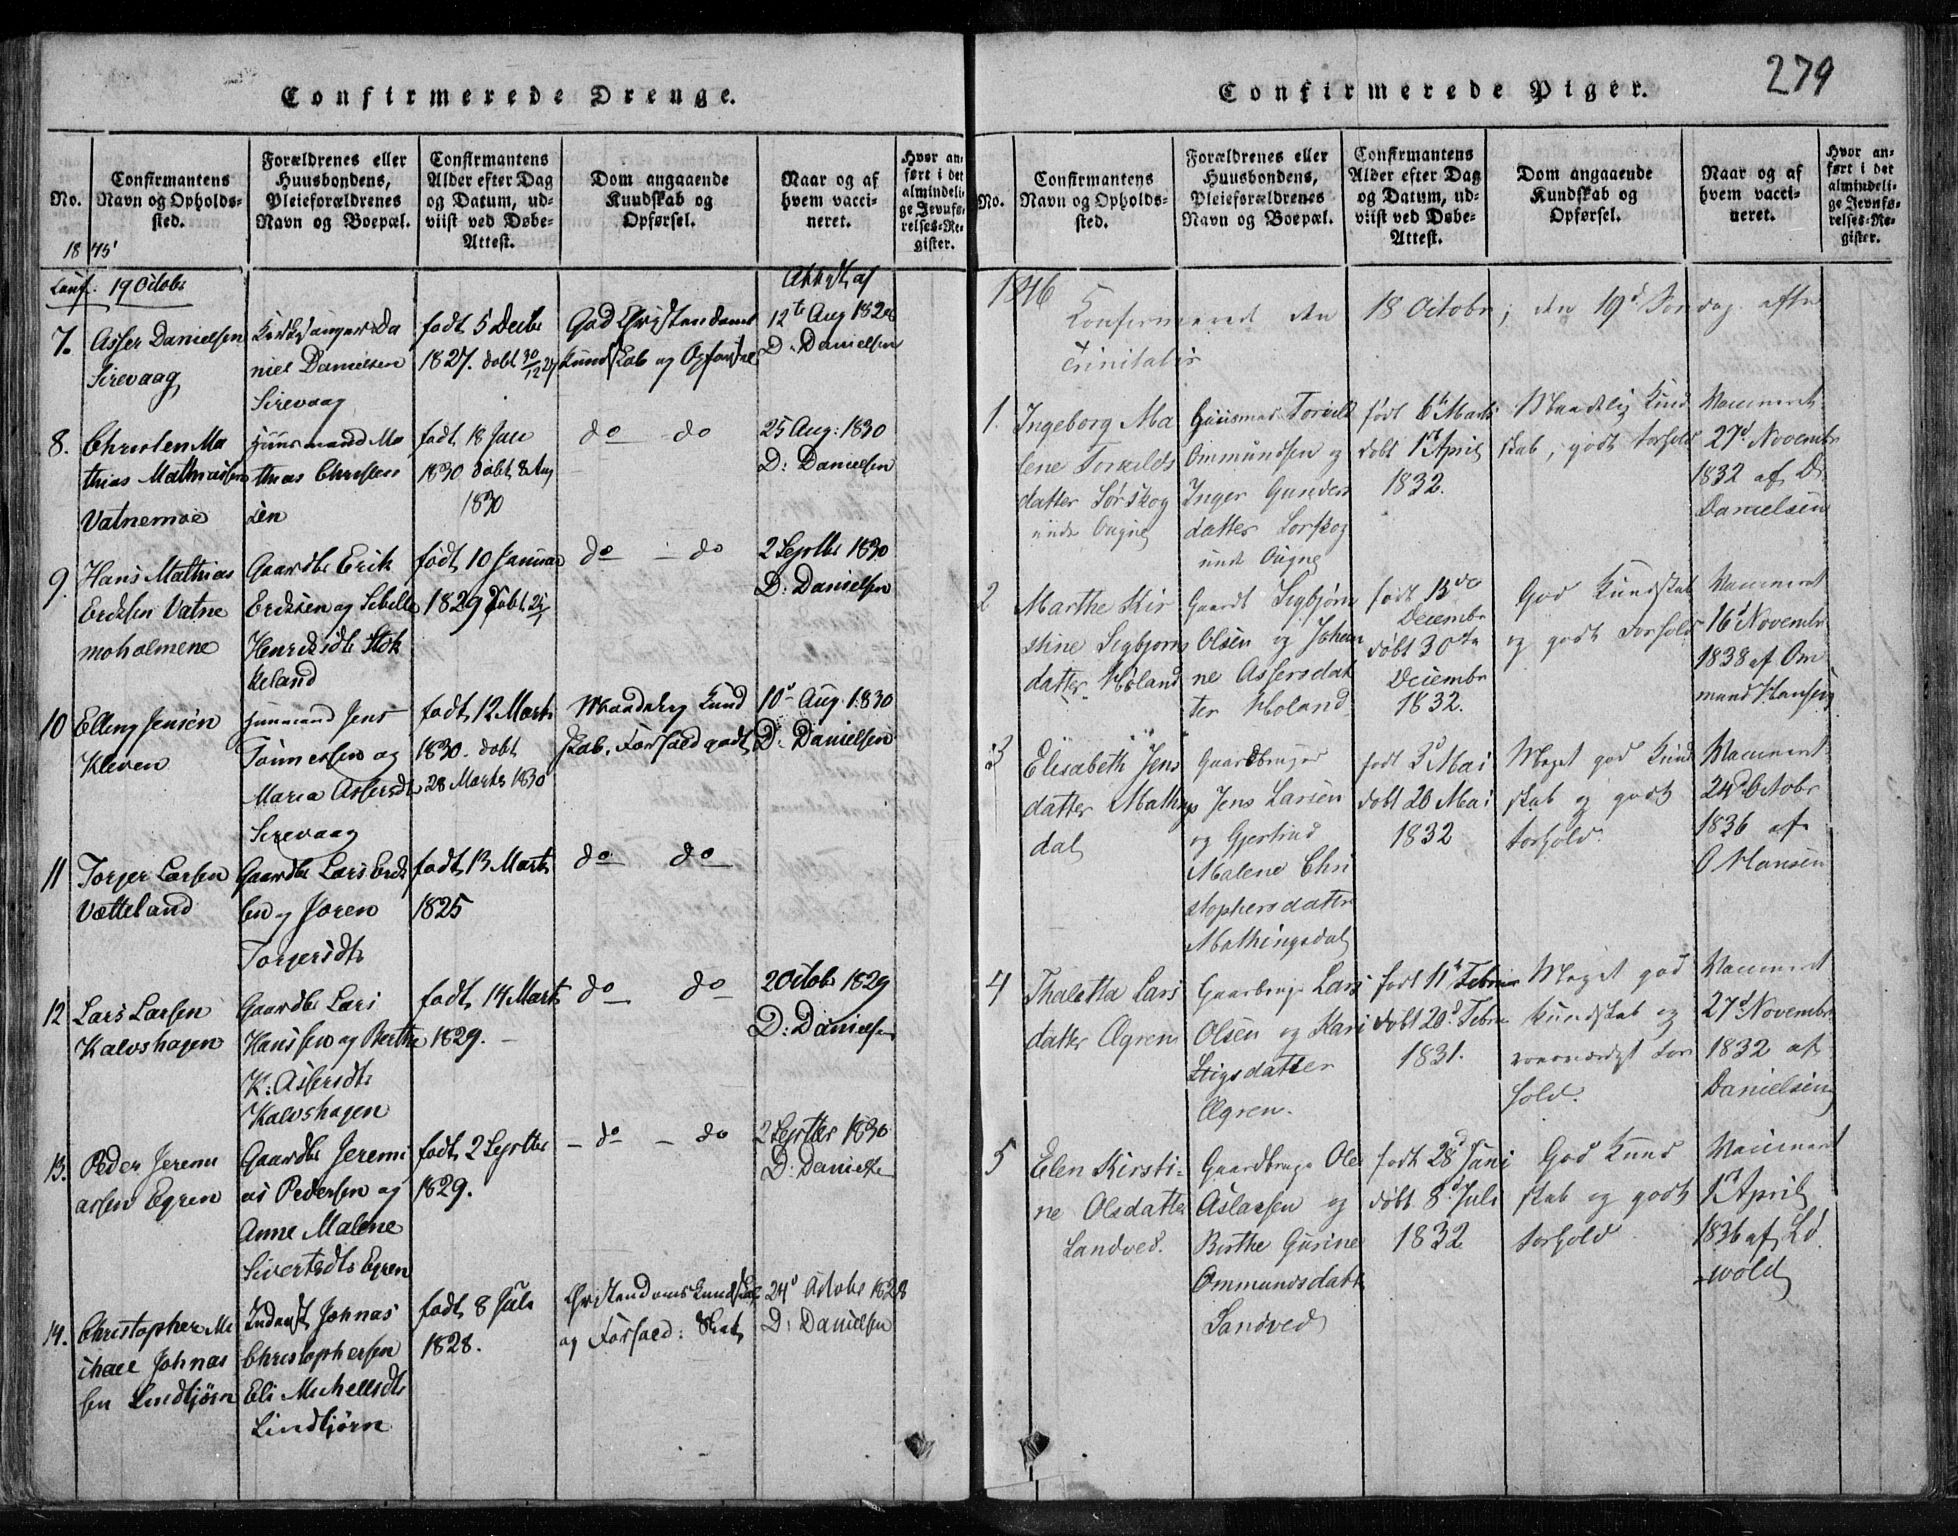 279
Confirmerede Drenge.
No.
Confirmantens
Navn og Opholds-
sted.
Forældrenes eller
Huusbondens,
Pleieforældrenes
Navn og Boepæl.
Confirmantens
Alder efter Dag
og Datum, ud-
viist ved Døbe-
Attest.
Dom angaaende
Kundskab og
Opførsel.
Naar og af
hvem vacci-
neret.
Hvor an-
ført i det
almindeli-
ge Jevnfø-
relses-Re-
gister.
1845
Conf. 19 Octobr
7.
Asser Danielsen
Sirevaag
Kirkesanger Da
niel Danielsen
Sirevaag
født 5 Decbr
1827. døbt 30/12 27
God Christendoms
Kundskab og Opførsel
Attest af
12te Aug 1828
D: Danielsen
8.
Christen Ma
thias Mathiassen
Vatnemoe
Huusmand Ma
thias Christen
sen
født 18 Juli
1830 døbt 8 Aug
1830
do - do
25 Aug: 1830
D: Danielsen
9.
Hans Mathias
Eriksen Vatne
moholmene
Gaardbr Erik
Eriksen og Sibille
Henriksdtr Stok
keland
født 10 Januar
1829 døbt 25/1
do - do
2 Septbr 1830
D: Danielsen
10
Elling Jensen
Kleven
Huusmand Jens
Tønnessen og
Maria Assersdtr
Sirevaag
født 12 Marts
1830. døbt
28 Marts 1830
Maadelig Kund
skab, Forhold godt
10de Aug 1830
D: Danielsen
11
Torger Larsen
Vætteland
Gaardbr Lars Erik
sen og Joren
Torgersdtr
født 13 Marts
1825
do do
12
Lars Larsen
Kalvshagen
Gaardbr Lars
Hanssen og Berthe
K: Assersdtr
Kalvshagen
født 14 Marts
1829. -
do do
2 Octobr 1829
D: Danielsen
13.
Peder Jeremi
assen Egren
Gaardbr Jeremi
as Pedersen og
Anne Malene
Sivertsdtr Egren
født 2 Septbr
1829.
- do - do
2 Septbr 1830
D: Danielsen
14.
Christopher Mi
chael Johnas
sen Lindtjørn
Johnas
Christophersen
Eli Michelsdtr
Lindtjørn
født 8 Juli
1828.
Christendoms Kundskab
og Forhold:
24de Octobr 1828
D: Danielsen
Confirmerede Piger.
No.
Confirmantens
Navn og Opholds-
sted.
Forældrenes eller
Huusbondens,
Pleieforældrenes
Navn og Boepæl.
Confirmantens
Alder efter Dag
og Datum, ud-
viist ved Døbe-
Attest.
Dom angaaende
Kundskab og
Opførsel.
Naar og af
hvem vacci-
neret.
Hvor an-
ført i det
almindeli-
ge Jevnfø-
relses-Re-
gister.
1846
Confirmeret den 18 Octobr; den 19de Søndag efter
Trinitatis
1.
Ingeborg Ma
lene Torkilds
datter Sørskog
under Ougne
Huusmand Torkild
Ommundsen og
Inger Gunders
datter Sørskog
under Ougne
født 6te Marts
døbt 1ste April
1832.
Maadelig Kund
skab, godt Forhold
Vaccineret
27de Novembr
1832 af D:
Danielsen
2
Marthe Kir
stine Sigbjørns
datter Moland
Gaardbr Sigbjørn
Olsen og Johan
ne Assersdat
ter Moland
født 13de
Decembr
døbt 30te
Decembr
1832.
God Kundskab
og godt Forhold
Vaccineret
16de Novembr
1838 af Om
mund Hansen
3
Elisabeth Jens
datter Mathings
dal
Gaardbruger
Jens Larsen
og Gjertrud
Malene Chri
stophersdatter
Mathingsdal
født 3de Mai
døbt 20 Mai
1832
Meget god Kund
skab og godt
Forhold.
Vaccineret
24de Octobr
1836 af
O Hansen
4
Thaletta Lars
datter Ægren
Gaardbruger Lars
Olsen og Kari
Stigsdatter
Ægren.
født 11te Febru
døbt 20de Febru
1831.
Meget god
Kundskab og
roesværdigt For
hold.
Vaccineret
27de Novembr
1832 af
Danielsen
5
Elen Kirsti-
ne Olsdatter
Sandved.
Gaardbruger Ole
Aslaksen og
Birthe Gurine
Ommundsdatter
Sandved
født 28de Juni
døbt 8de Juli
1832
God Kund
skab og godt
Forhold
Vaccineret
1ste April
1836 af